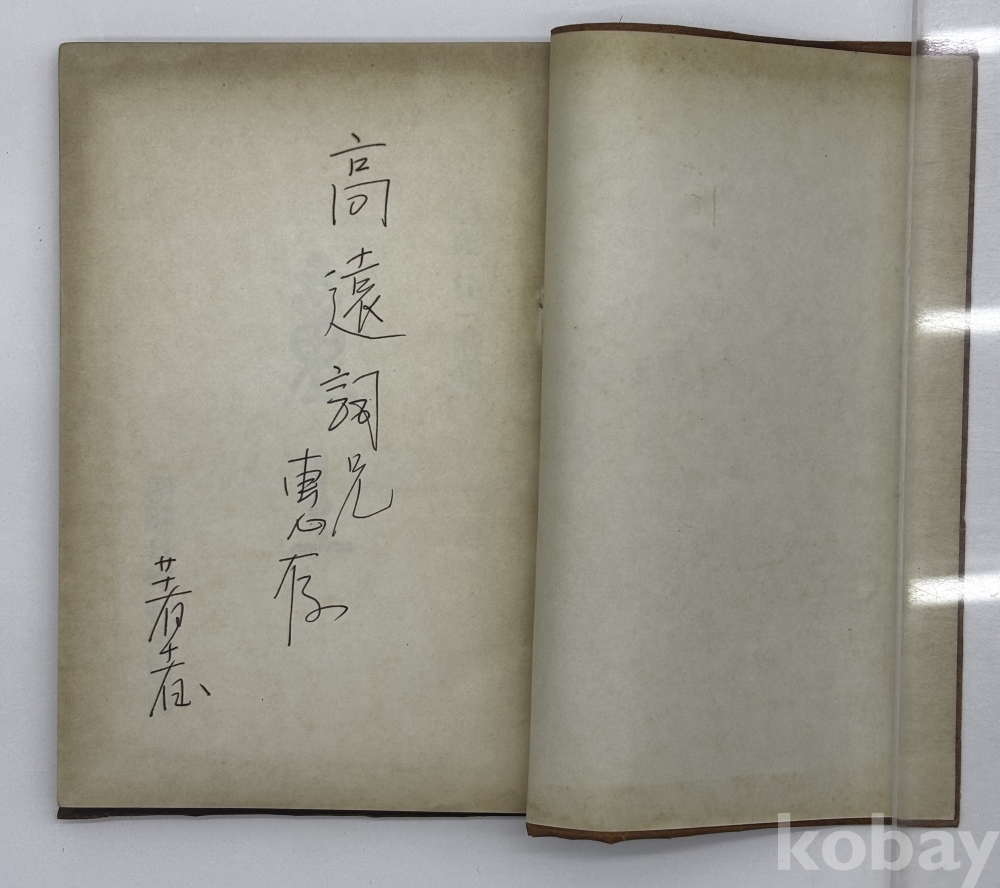 高遠詞兄
惠存
著者
kobay